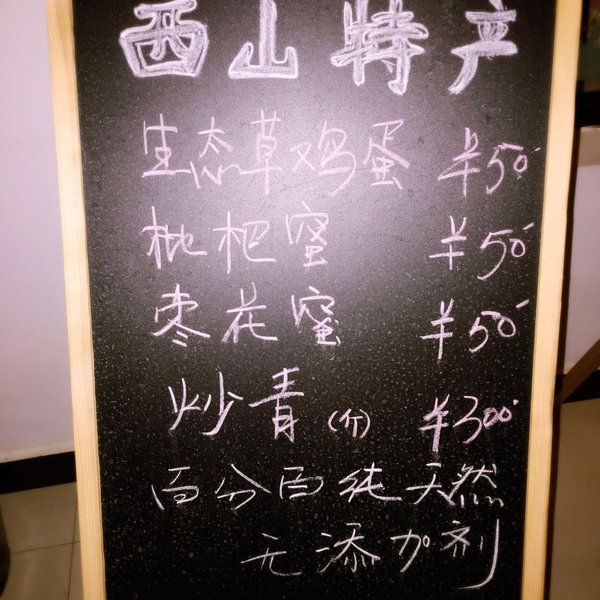 西山特产
生态草鸡蛋 ¥50
枇杷蜜 ¥50
枣花蜜 ¥50
炒青(斤) ¥300
百分百纯天然
无添加剂